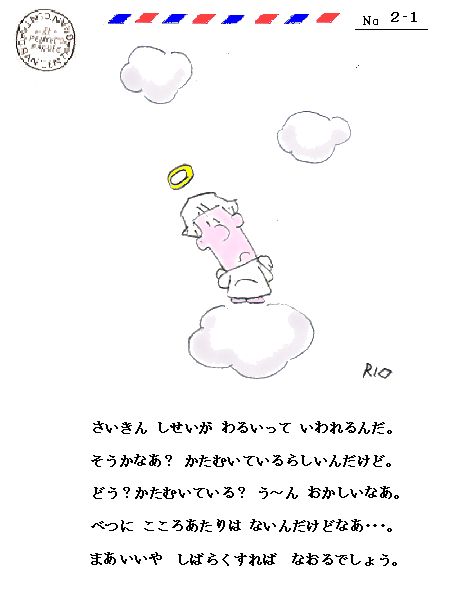 No 2-1
RIO
さいきん しせいが わるいって いわれるんだ。
そうかなあ? かたむいているらしいんだけど。
どう?かたむいている? う〜ん おかしいなあ。
べつに こころあたりは ないんだけどなあ・・・。
まあいいや しばらくすれば なおるでしょう。